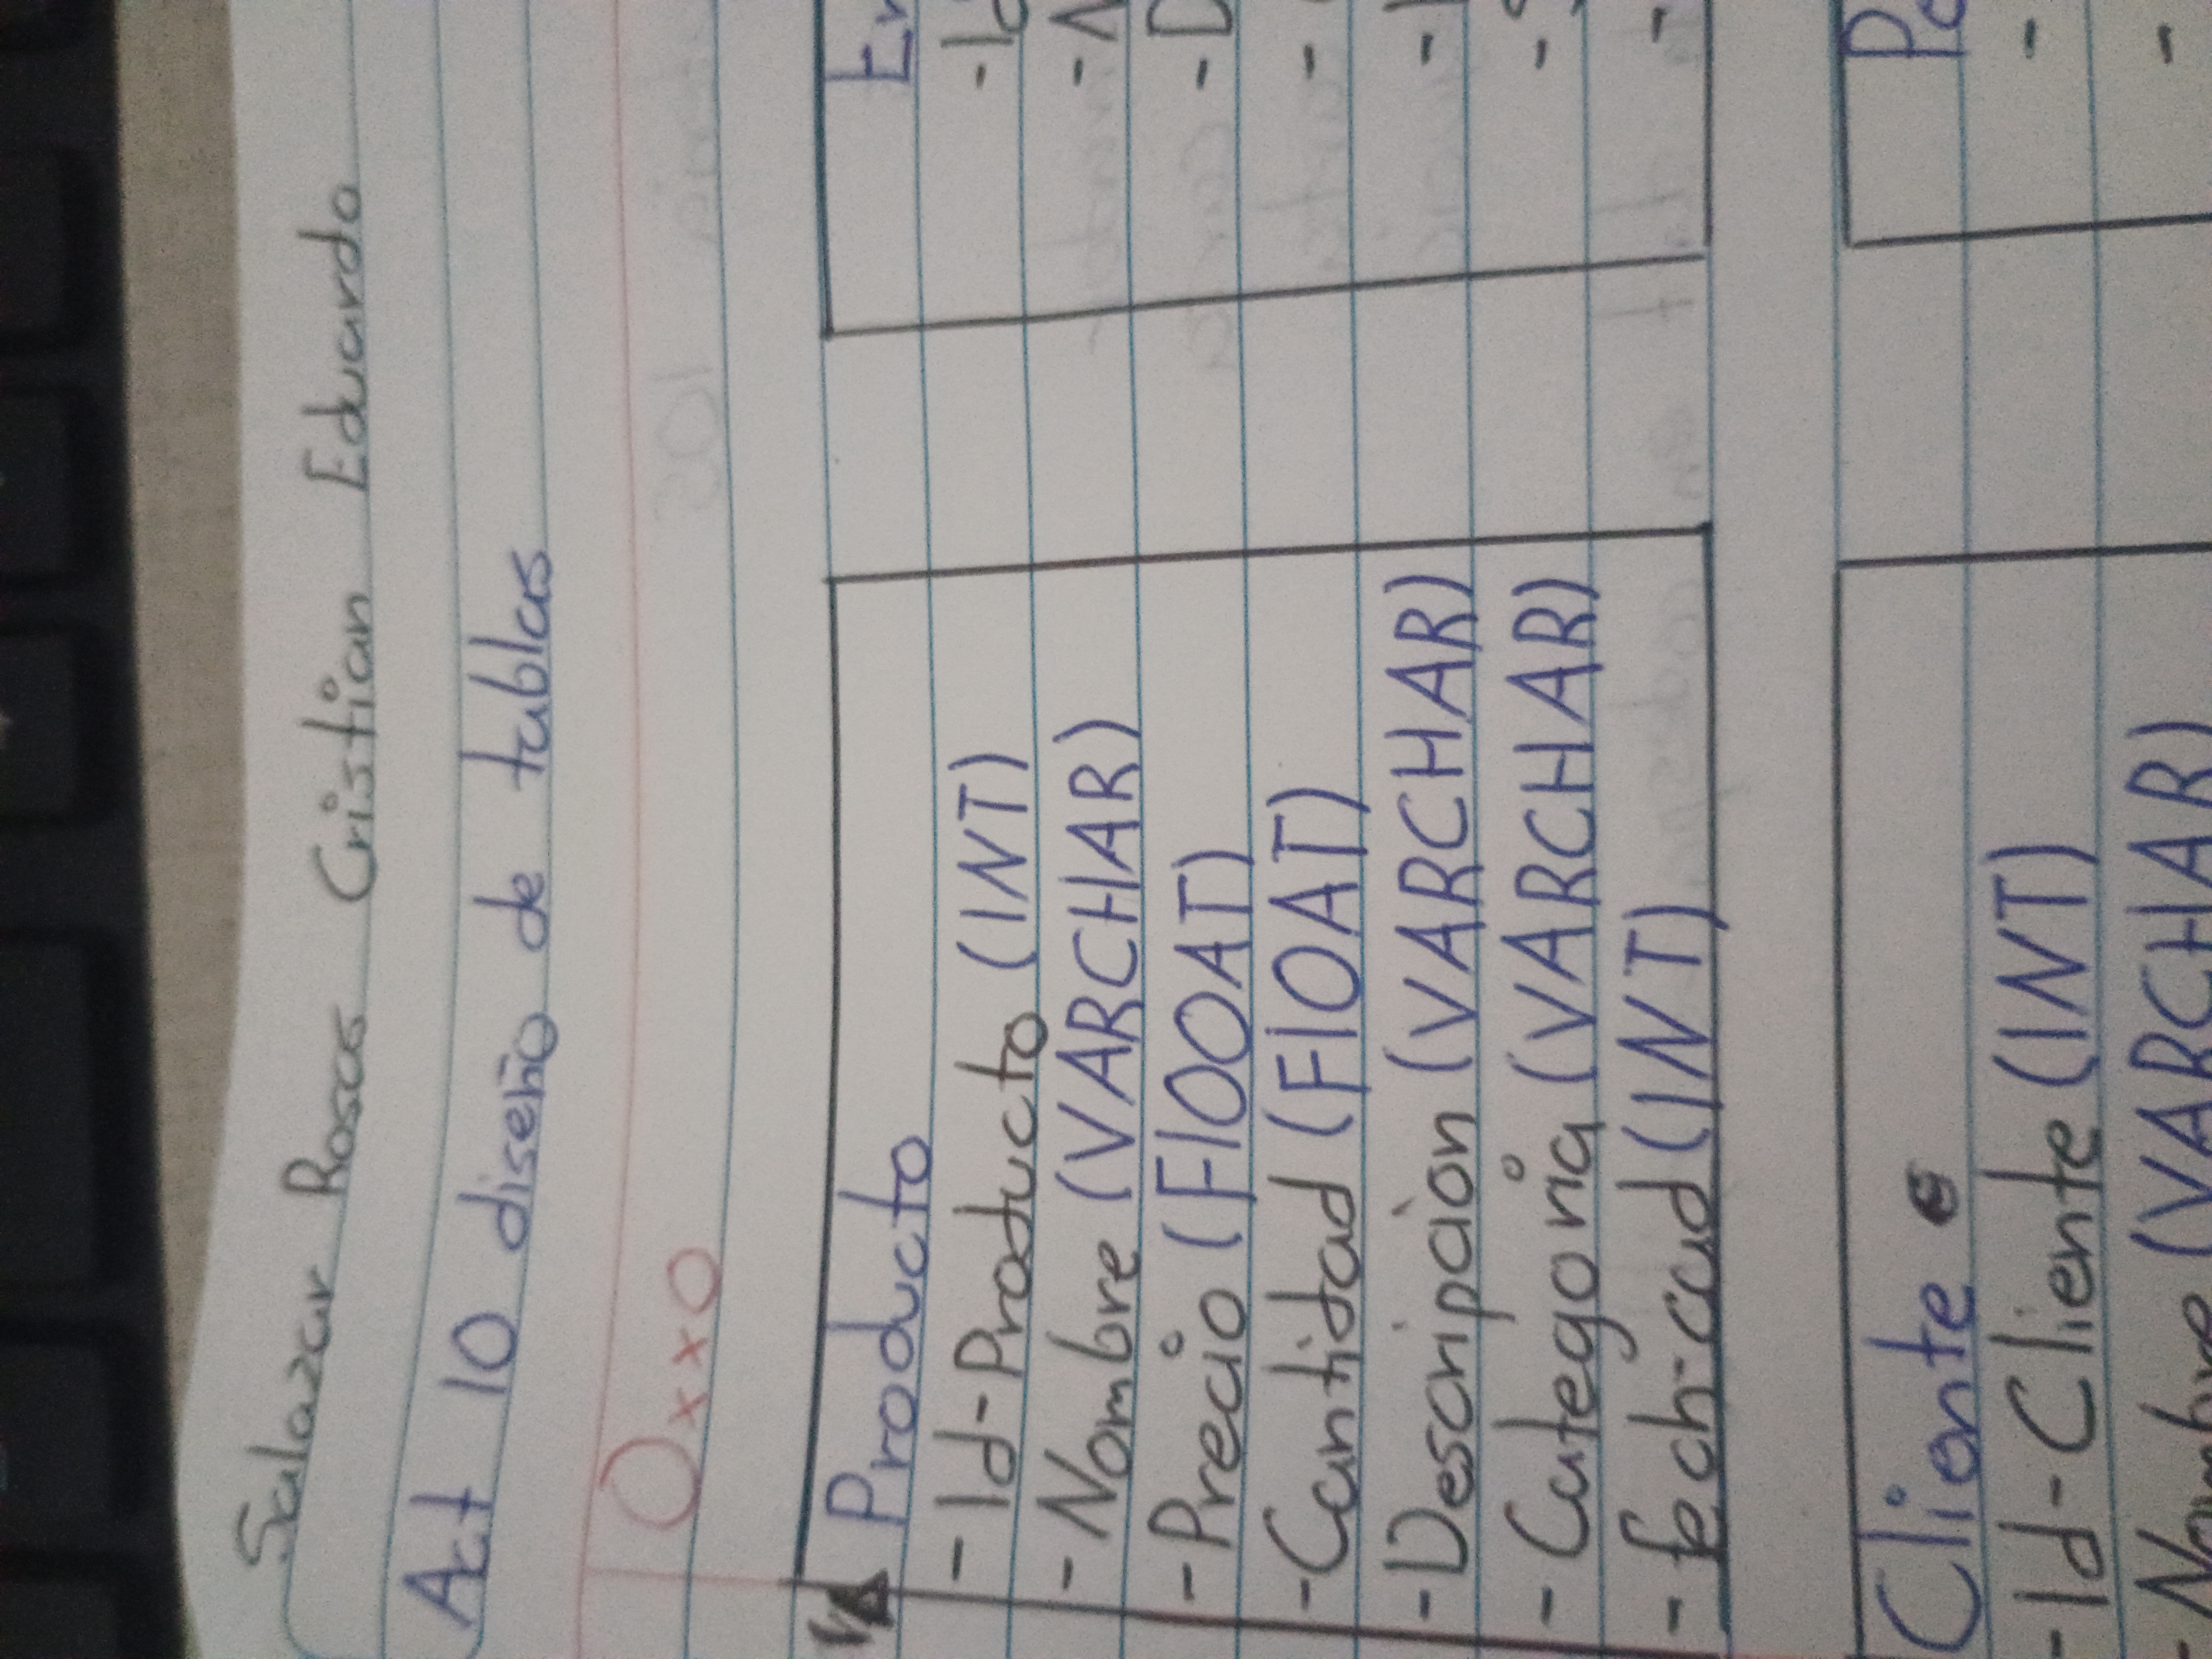 Salazar Rosas Cristian Eduardo
Act 10 diseño de tablas
Oxxo
Producto
-Id-Producto (INT)
-Nombre (VARCHAR)
-Precio (FlOOAT)
-Cantidad (FlOAT)
-Descripción (VARCHAR)
-Categoria (VARCHAR)
-fech-cad (INT)
Cliente
-Id-Cliente (INT)
-Nombre (VARCHAR)